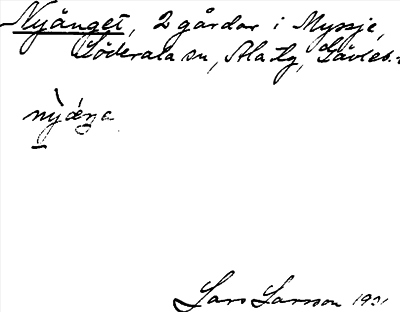 Nyänget, 2 gårdar i Myssje,
Söderala sn, Ala tg, Gävleb.
nỳæŋe
Lars Larsson 1931